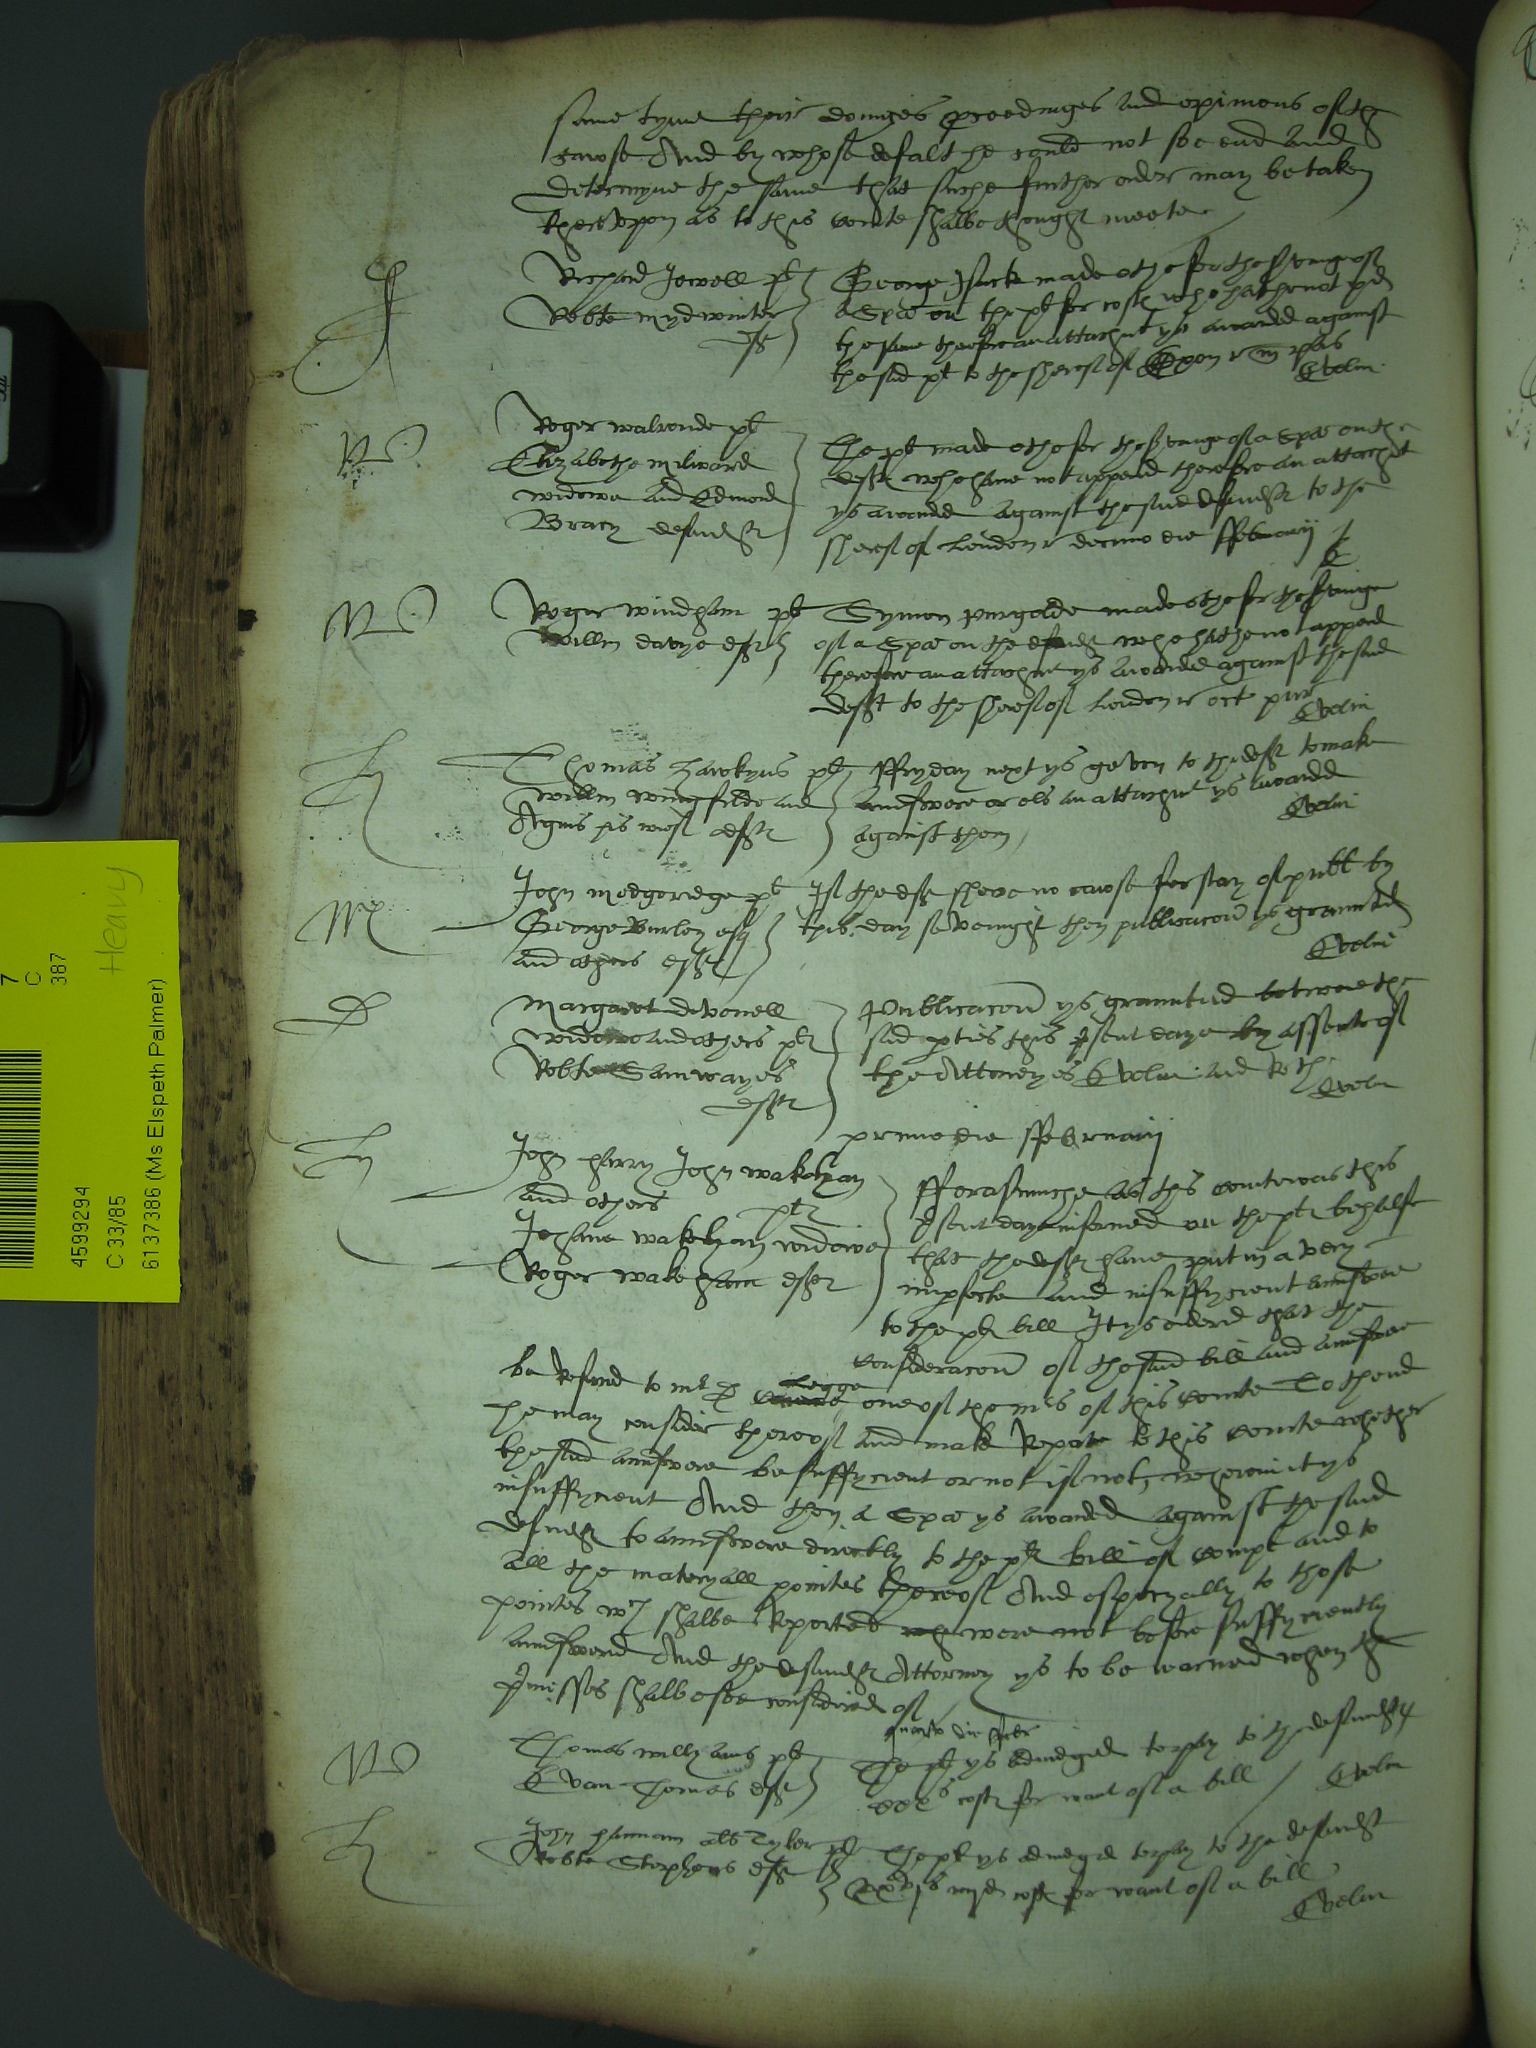 same tyme their doinges proceedinges and opinions of the
cause And by whose defalt he could not soe end and
determyne the same that suche further order may be taken
therevppon as to this courte shalbe thought meete
Richard Jewell pl
Robte mydwinter
deft
George made othe for the servinge of
a Spa on the pl for costes who hathe not pd
the same therefore an attachmt ys awarded against
the said pl to the sheref of
Evelin
Roger walronde pl
Elizabethe milward
widowe and Edmond
Bracy defendtes
The pl made othe for the servinge of a Spa on the
deftes who have not appered therefore an attachmt
ys awarded against the said defendtes to the
sheref of London decimo die ffebruarij
Roger windham pl
Willm davye deft
Symon made othe for the servinge
of a Spa on the defendt who hathe not appered
therefore an attachmt ys awarded against the said
deft to the sheref of London oct pur
Evelin
Thomas Hawkyns pl
Willm wingfilde and
Agnis his wief deftes
ffryday next ys geven to the deftes to make
aunswere or els an attachmt ys awarded
against them
Evelin
John pl
George Burley esq
and others deftes
If the deftes shewe no cause for stay of publ by
this day sevenight then publicacon ys graunted
Evelin
Margaret
widowe and others pl
Robte Samwayes
deft
Publicacon ys graunted betwene the
said pties this psent daye by assente of
the Attorneyes Evelin and
Evelin
primo die ffebruarij
John Harry John wakeham
and others pl
Johane wakeham widowe
Roger wakeham deftes
fforasmuche as this courte was this
psent day informed on the pl behalfe
that the deftes have put in a very
imperfecte and insuffycient aunswere
to the pl bill It ys ordered that the
consideracon of the said bill and aunswere
be Referred to mr D legge one of the mrs of this courte To thend
he may consider thereof and make Reporte to this courte whether
the said aunswere be suffycient or not if not, wherein it ys
insuffycient And then a Spa ys awarded against the said
defendtes to aunswere directly to the pl bill of compt and to
all the materyall pointes thereof And especyally to those
pointes wch shalbe Reported were not before suffyciently
aunswered And the defendtes Attorney ys to be warned when the
pmisses shalbe soe considered of
quarto die febr
Thomas willyams pl
Evan Thomas deft
The pl ys adiudged to pay to the defendt
xxs costes for want of a bill
Evelin
John Hannam als Tyler pl
Robte Stephens deft
The pl ys adiudged to pay to the defendt
costes for want of a bill
Evelin
7
C
387
Heavy
4599294
C 33/85
6137386 (Ms Elspeth Palmer)